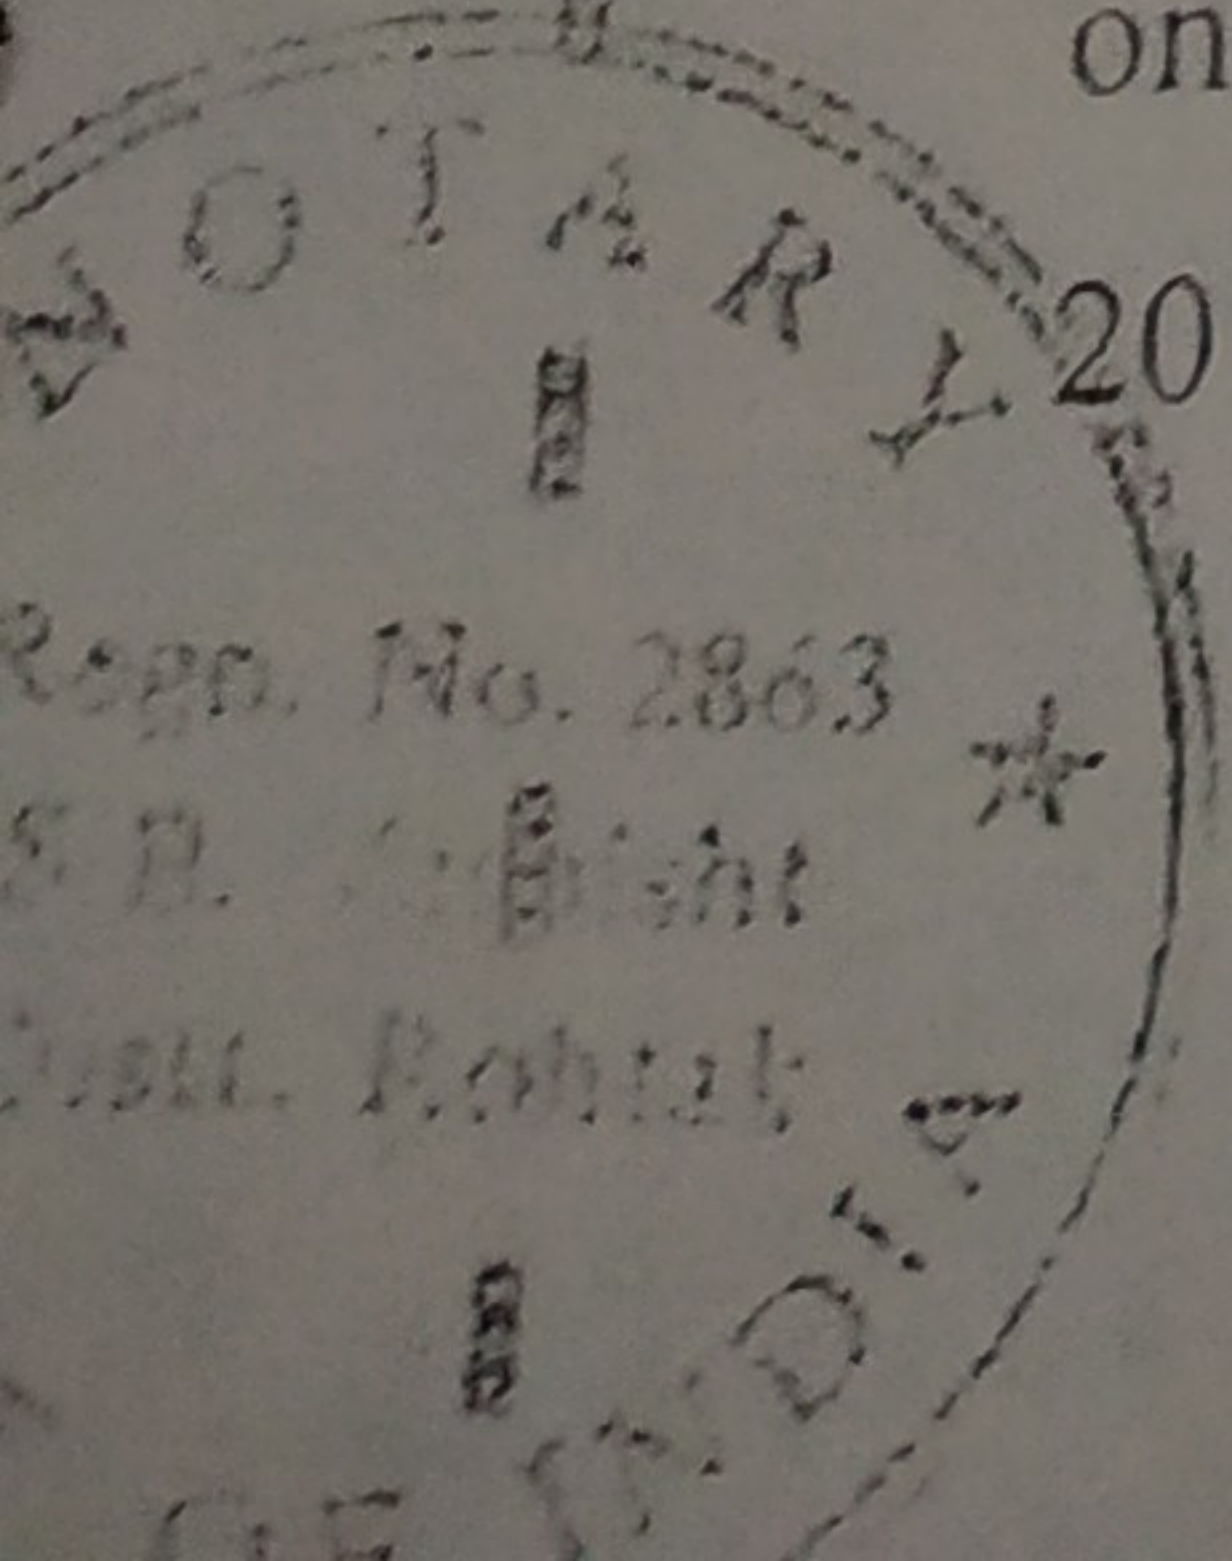 on
NOTARY
20
Regn. No. 2863
Distt. Rohtak
OF INDIA